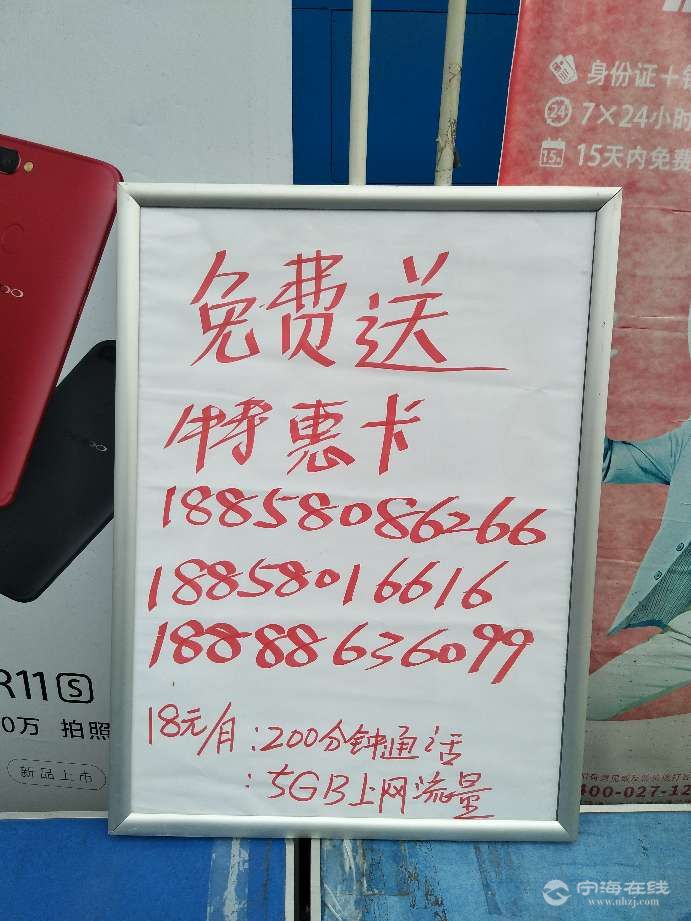 免费送
特惠卡
18858086266
18858016616
18888636099
18元/月:200分钟通话
:5GB上网流量
身份证+
7×24小时
15天内免费
R11s
0万 拍照
新品上市
400-027-12
宁海在线
www.nhzj.com